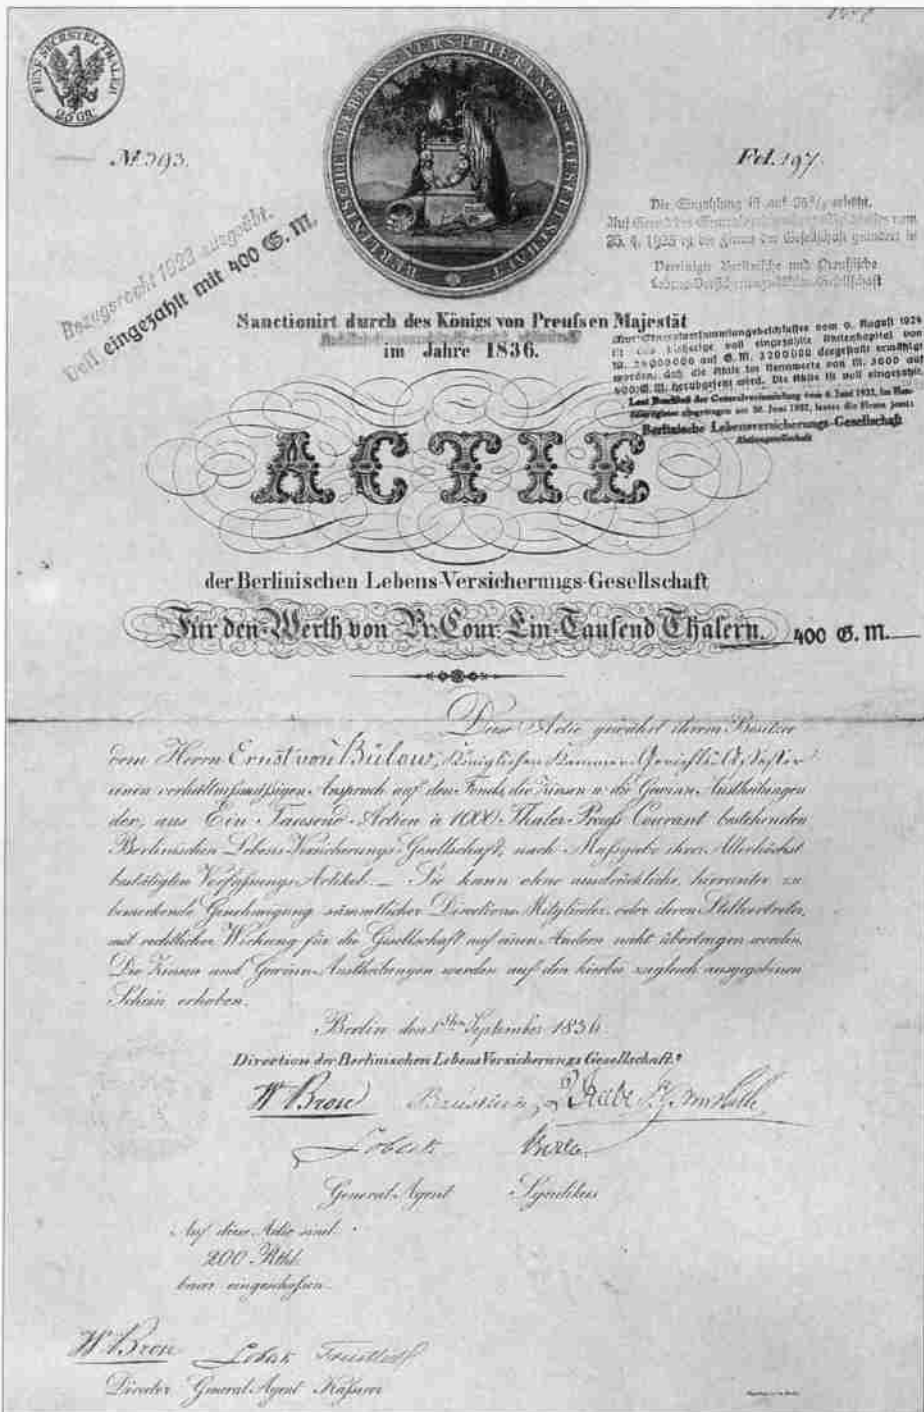 FÜNF SECHSTEL THALER
25 GR:
BERLINISCHE LEBENS-VERSICHERUNGS-GESELLSCHAFT
Fol. 197.
Bezugsrecht 1923 ausgeübt.
Voll eingezahlt mit 400 G. M.
Die Einzahlung ist auf
25. 4. 1923 ist die Firma der Gesellschaft geändert in
Vereinigte Berlinische und Preußische
Lebens-Versicherungs-Aktien-Gesellschaft
Sanctionirt durch des Königs von Preufsen Majestät
im Jahre 1836.
Generalversammlungsbeschlusses vom 6. August 1924
ist das bisherige voll eingezahlte Aktienkapital von
auf G. M. 3200000 dergestalt ermäßigt
worden, daß die Aktie im Nennwerte von M. 3000 auf
400 G. M. herabgesetzt wird. Die Aktie ist voll eingezahlt.
Laut Beschluß der Generalversammlung vom 6. Juni 1932, im Han-
delsregister eingetragen am 30. Juni 1932, lautet die Firma jetzt:
Berlinische Lebensversicherungs-Gesellschaft
Aktiengesellschaft
ACTIE
der Berlinischen Lebens-Versicherungs-Gesellschaft
Für den Werth von Pr: Cour: Ein Tausend Thalern. 400 G. M.
Diese Actie gewährt ihrem Besitzer
dem Herrn Ernst von Bülow, Königlichen Kammer-Gerichts-Assessor
einen verhältnissmässigen Anspruch auf den Fonds, die Zinsen u. die Gewinn-Austheilungen
der, aus Ein Tausend Actien à 1000 Thaler Preuß Courant bestehenden
Berlinischen Lebens-Versicherungs-Gesellschaft, nach Maßgabe ihrer Allerhöchst
bestätigten Verfassungs-Artikel. — Sie kann ohne ausdrückliche, hierunter zu
bemerkende Genehmigung sämmtlicher Directions-Mitglieder, oder deren Stellvertreter,
mit rechtlicher Wirkung für die Gesellschaft auf einen Andern nicht übertragen werden.
Die Zinsen und Gewinn-Austheilungen werden auf den hierbei zugleich ausgegebenen
Schein erhoben.
Berlin den 1sten September 1836.
Direction der Berlinischen Lebens Versicherungs Gesellschaft.
W Brose
Lobeck
General-Agent Syndikus
Auf diese Actie sind
200 Rthl.
baar eingeschossen.
W Brose Lobeck
Director General-Agent Kassirer